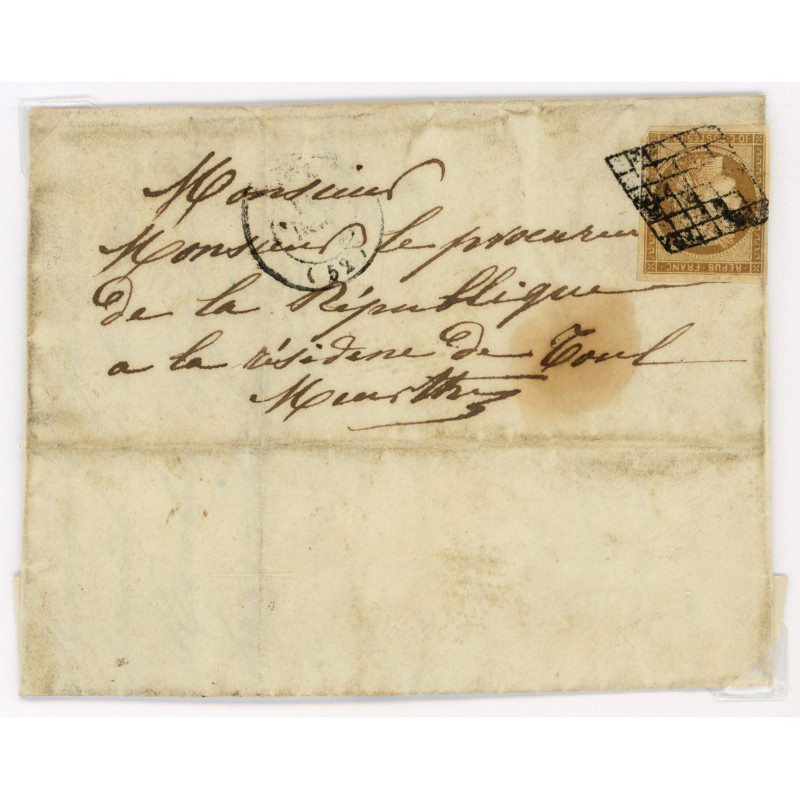 Monsieur
Monsieur le procureur
de la République
a la résidene de Toul
Meurthe
(52)
10·C POSTES 10·C
REPUB FRANC